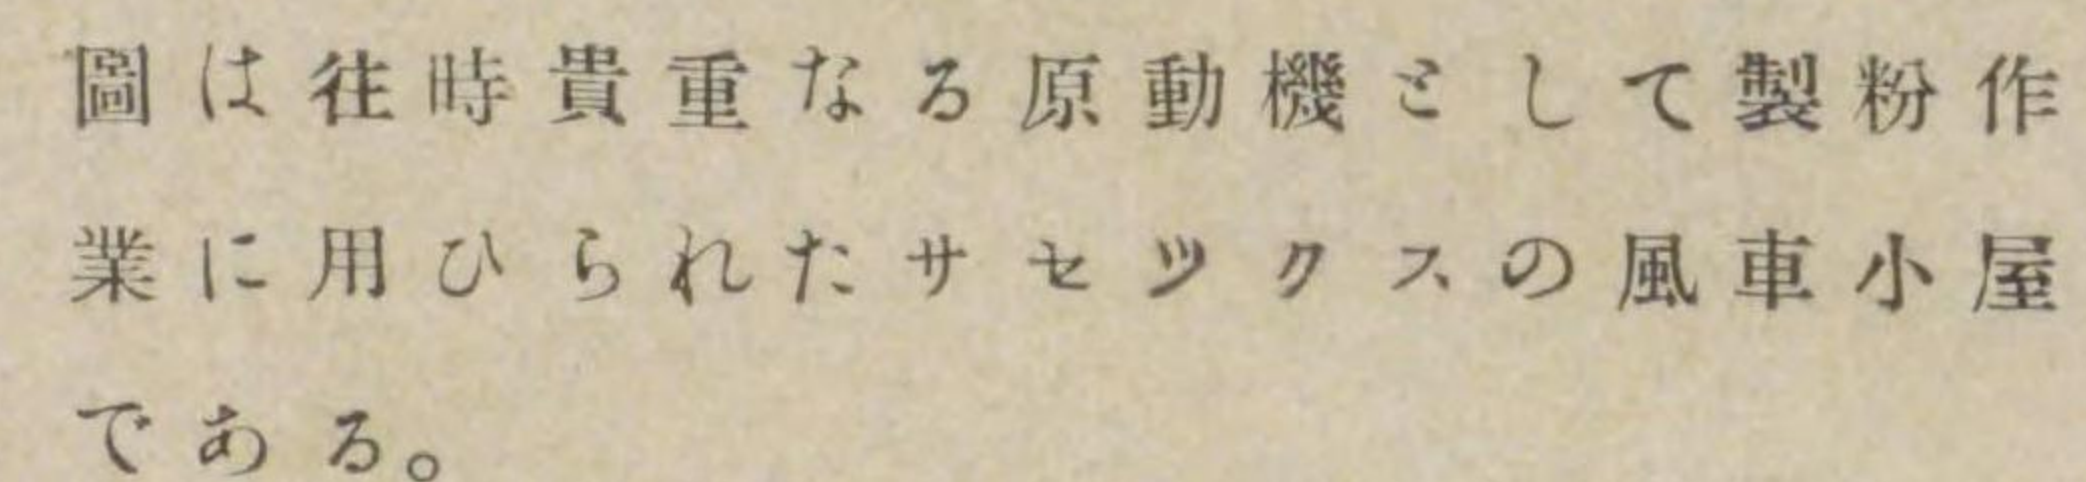 圖は往時貴重なる原動機として製粉作
業に用ひられたサセックスの風車小屋
である。